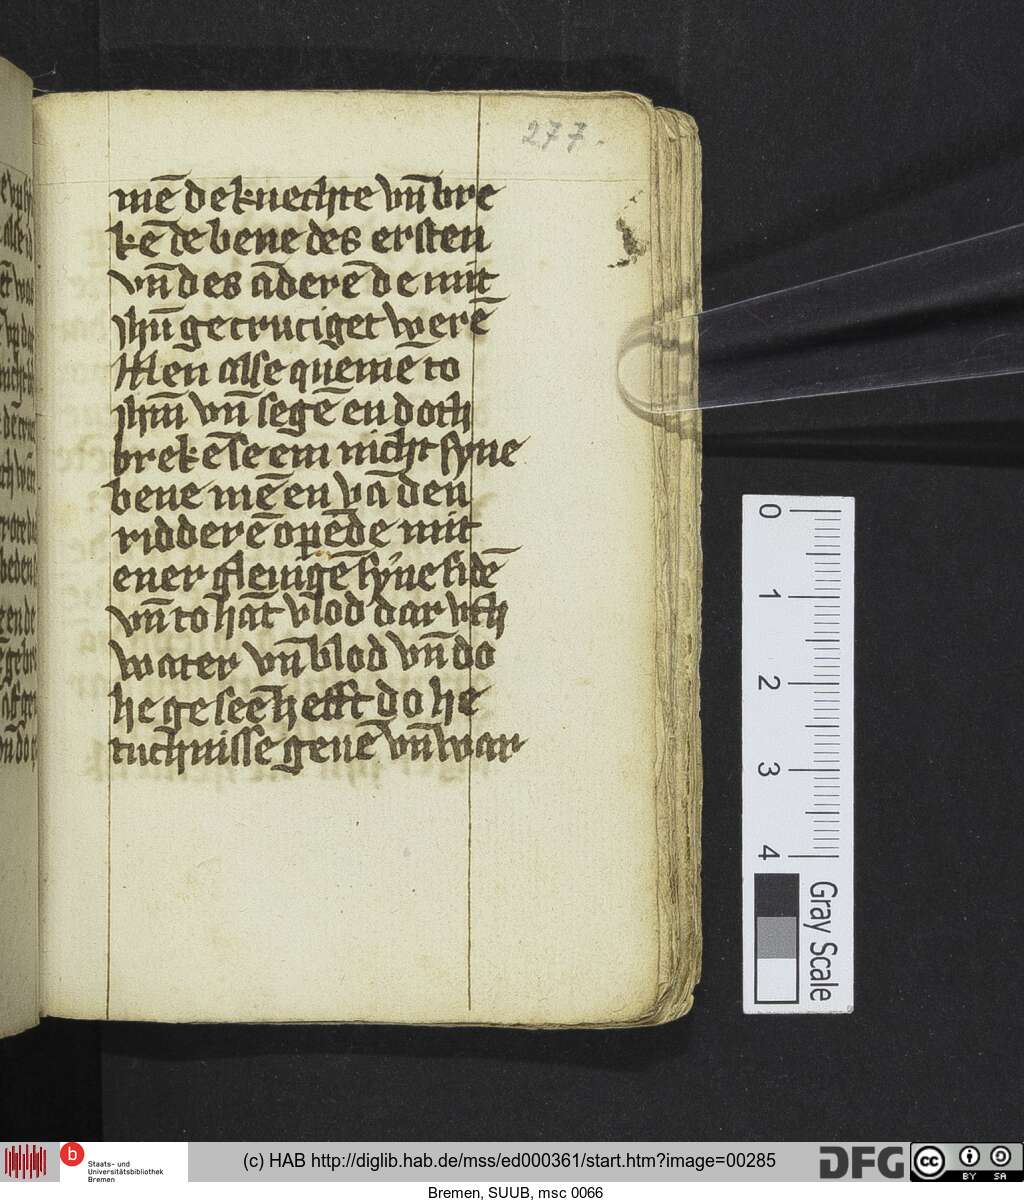 277.
mē de knechte vn̄ bre
kē de bene des ersten
vn̄ des āderē de mit
ihū gecruciget werē
Men alse quemē to
ihm̄ vn̄ segē en doth
brekē se em nicht syne
bene mē en vā den
ridderē opēde mit
ener gleuigē syne sidē
vn̄ to hāt vlod dar vth
water vn̄ blod vn̄ do
he ge seē hefft do he
tuchnisse geuē vn̄ war
0
1
2
3
4
Gray Scale
b
Staats- und
Universitätsbibliothek
Bremen
(c) HAB http://diglib.hab.de/mss/ed000361/start.htm?image=00285
DFG
cc
BY SA
Bremen, SUUB, msc 0066